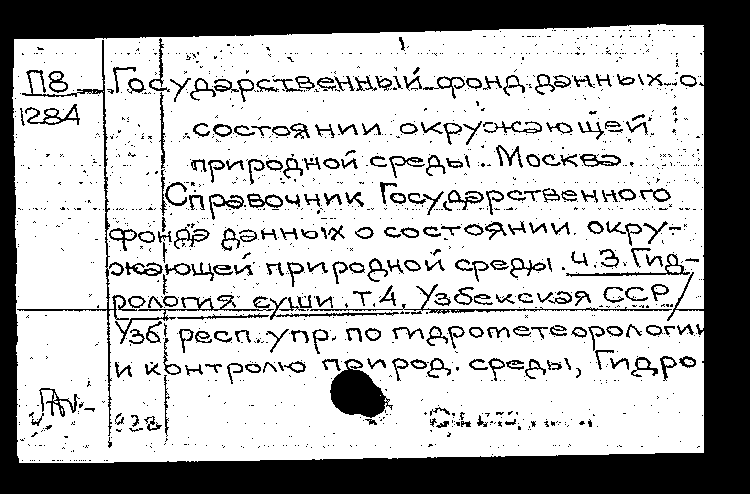 П8
1284
Государственный фонд данных о
состоянии окружающей
природной среды. Москва.
Справочник Государственного
фонда данных о состоянии окру-
жающей природной среды. ч.3. Гид-
рология суши. т.4. Узбекская ССР/
Узб. респ. упр. по гидрометеорологии
и контролю природ. среды, Гидро-